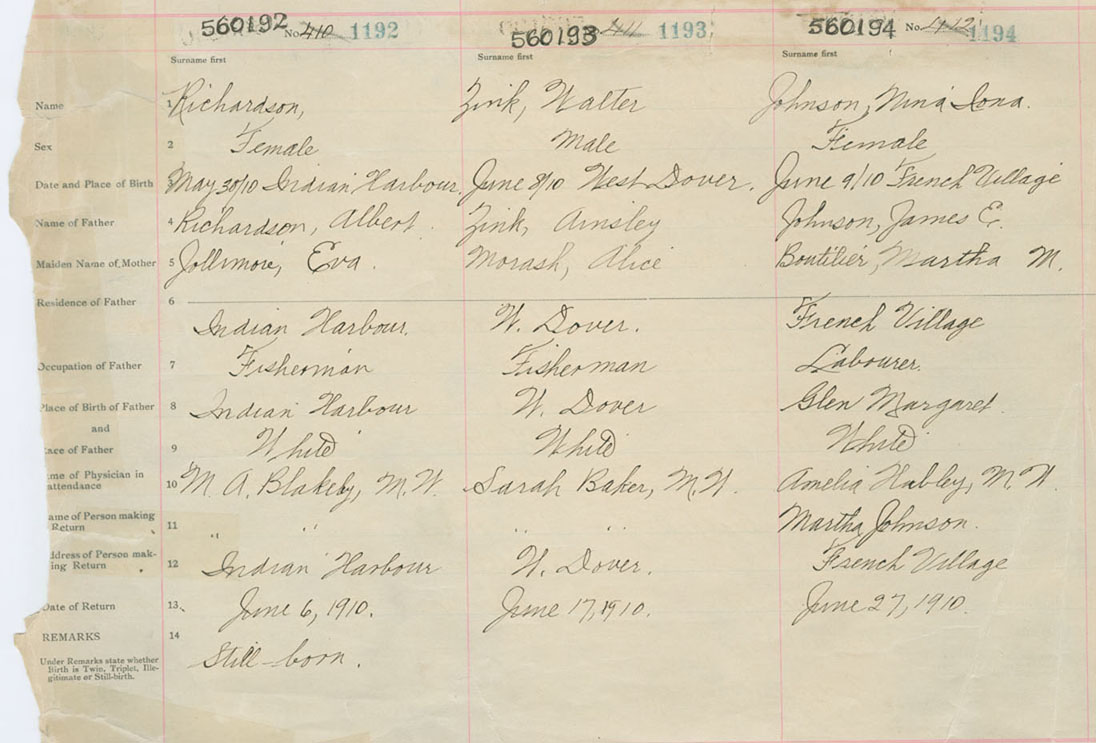 560192 No. 410 1192 560193 411 1193 560194 No. 412 1194
Surname first Surname first Surname first
Name 1 Richardson, Zink, Walter Johnson, Nina Iona.
Sex 2 Female Male Female
Date and Place of Birth 3 May 30/10 Indian Harbour. June 8/10 West Dover. June 9/10 French Village
Name of Father 4 Richardson, Albert. Zink, Ainsley Johnson, James E.
Maiden Name of Mother 5 Jollimore, Eva. Morash, Alice Boutilier, Martha M.
Residence of Father 6
Indian Harbour. W. Dover. French Village
Occupation of Father 7 Fisherman Fisherman Labourer.
Place of Birth of Father 8 Indian Harbour W. Dover Glen Margaret.
and
ace of Father 9 White White White
me of Physician in
attendance 10 M. A. Blakeby, M.W. Sarah Baker, M.W. Amelia Hubley, M.W.
ame of Person making
Return 11 " " " Martha Johnson.
ddress of Person mak-
ing Return 12 Indian Harbour W. Dover. French Village
Date of Return 13 June 6, 1910. June 17, 1910. June 27, 1910.
REMARKS 14
Still-born.
Under Remarks state whether
Birth is Twin, Triplet, Ille-
gitimate or Still-birth.